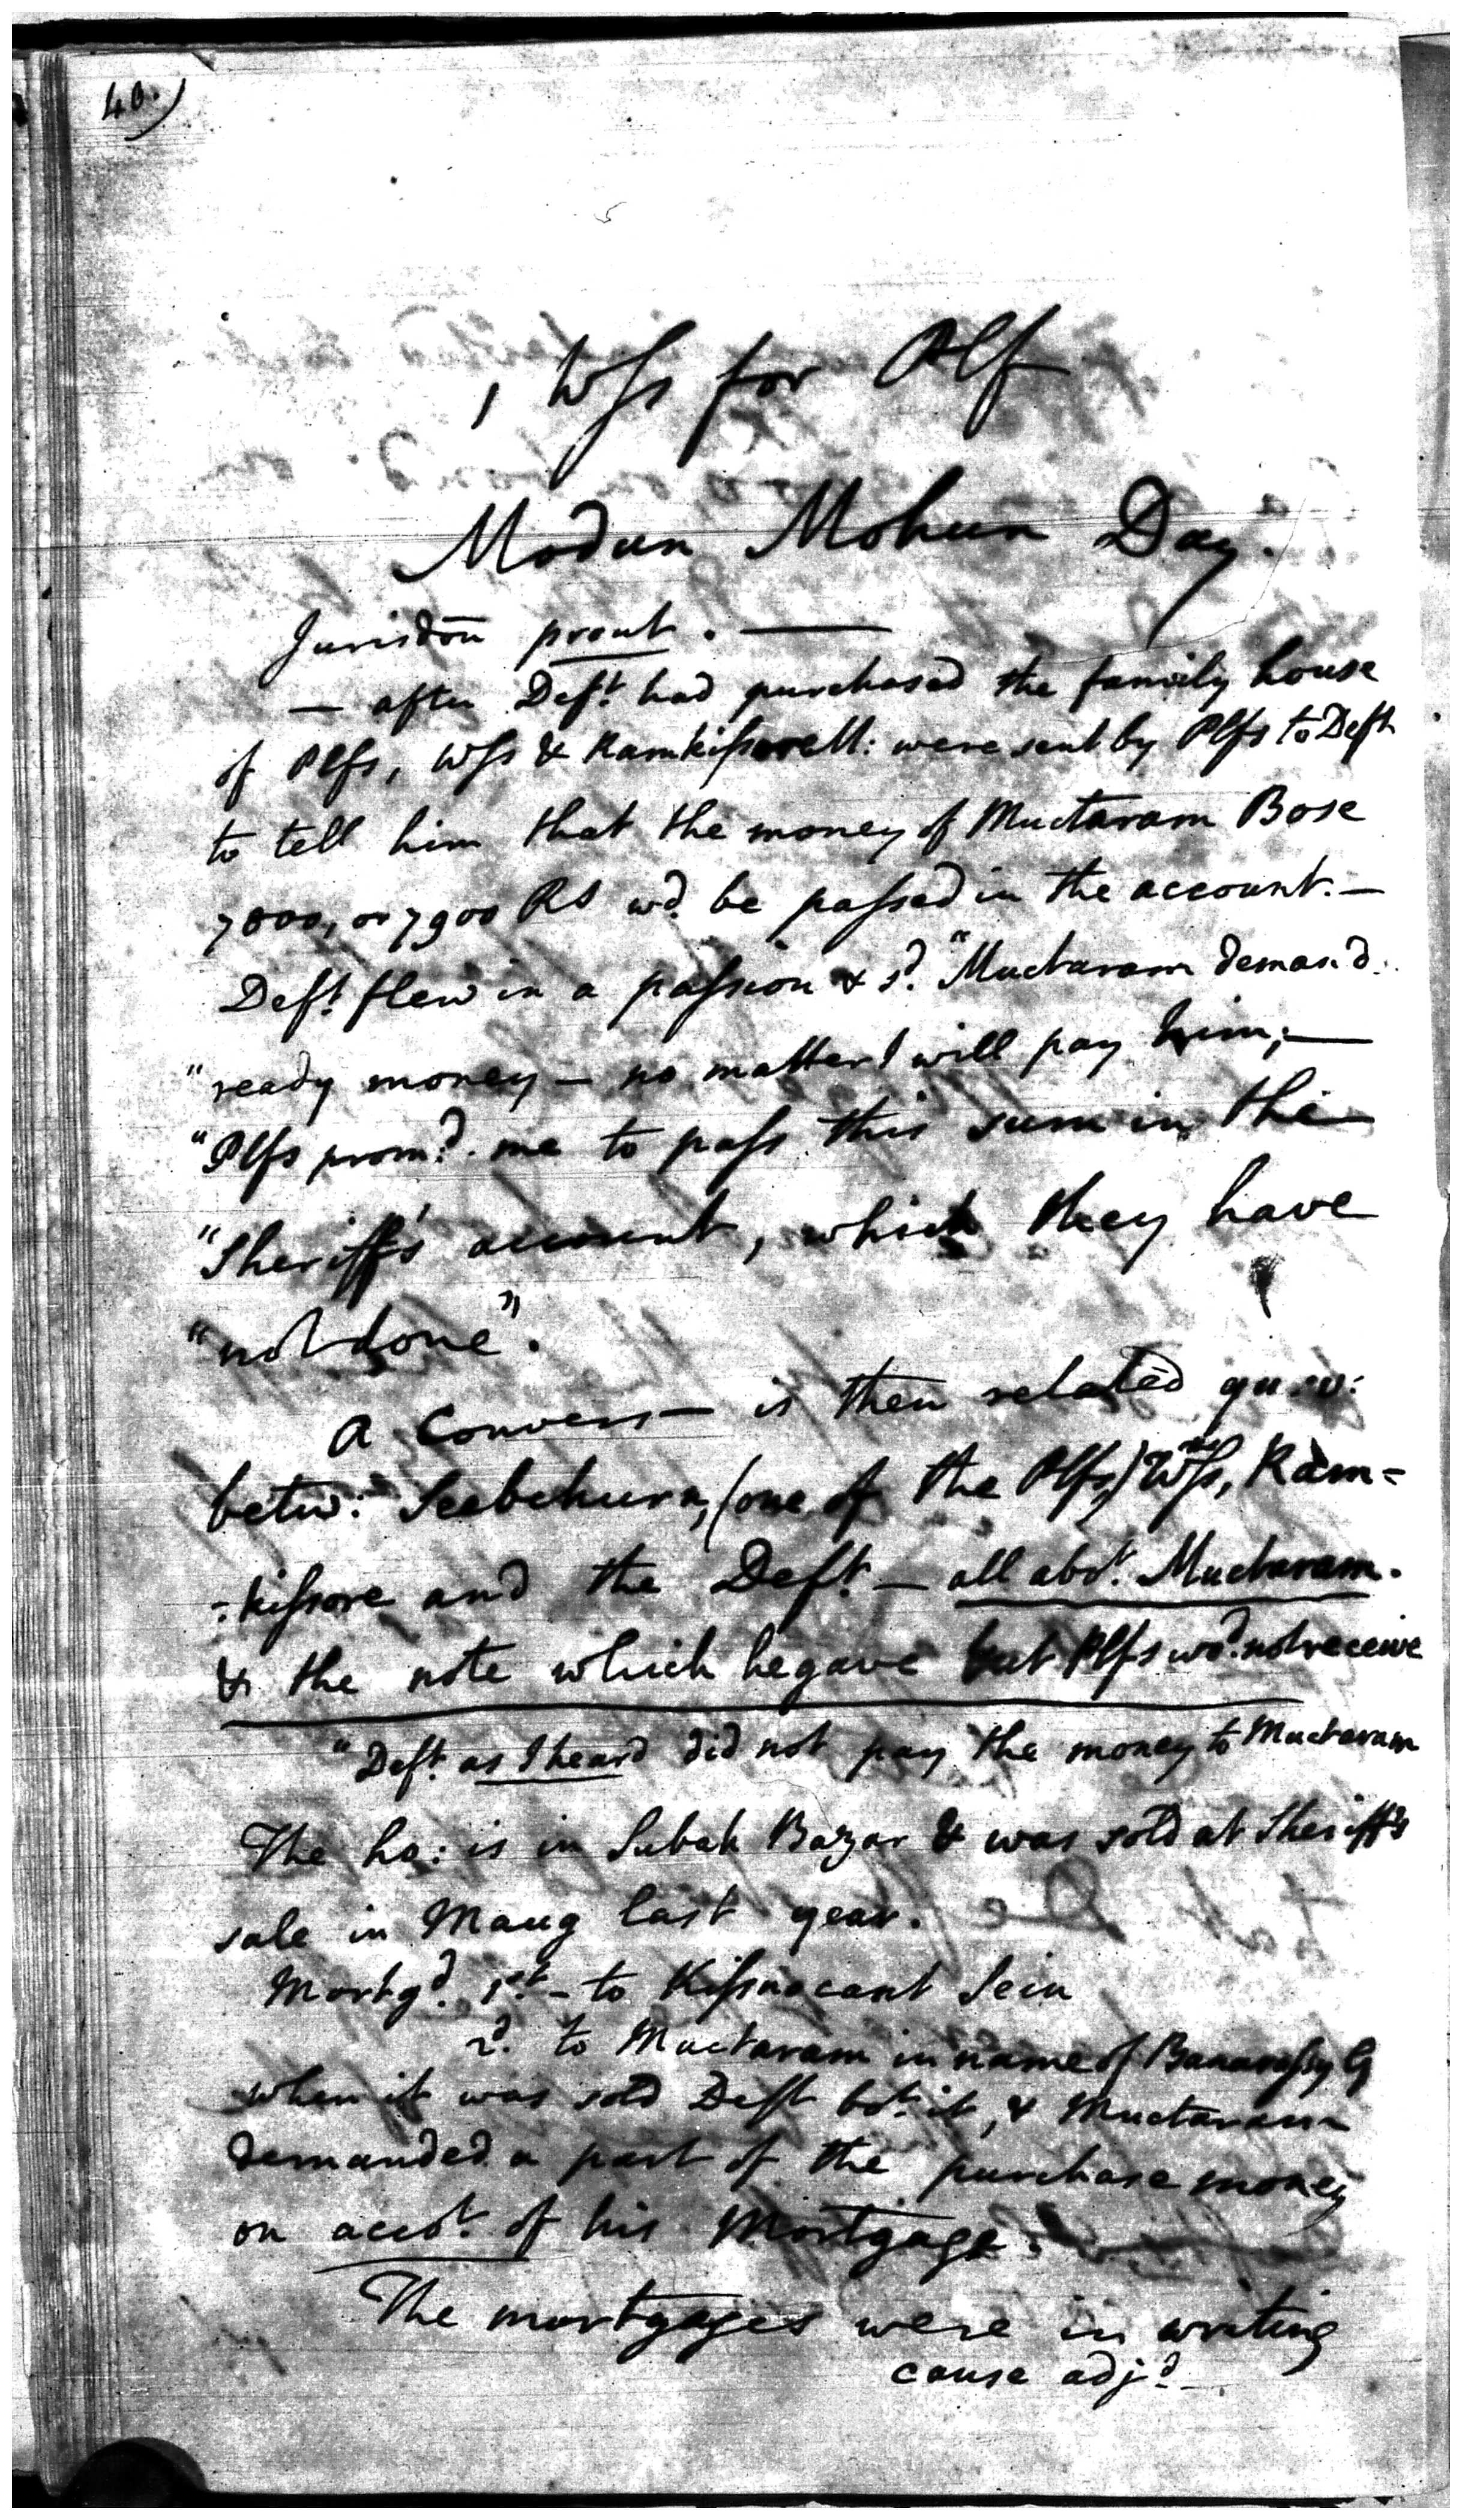 40.)
1 Wss for Plf
Modun Mohun Day.
Jurisdōn prout. —
— after Deft. had purchased the family house
of Plfs, Wss & Ramkissore M: were sent by Plfs to Deft
to tell him that the money of Muctaram Bose
7800, or 7900 Rs wd. be passed in the account. —
Deft. flew in a passion & sd. "Muctaram demand.
"ready money — no matter I will pay him; —
"Plfs promd. me to pass this sum in the
"Sheriff's account, which they have
"not done".
A Convers— is then related
betw: Seebchurn, (one of the Plfs) Wss, Ram=
=kissore and the Deft. — all abt. Muctaram.
& the note which he gave but Plfs wd. not receive
"Deft. as I heard did not pay the money to Muctaram
The ho: is in Subah Bazar & was sold at Sheriff's
sale in Maug last year.
Mortgd. 1st. — to Kissnocant Sein
2d. to Muctaram in name of Banarassy G
when it was sold Deft bot. it, & Muctaram
demanded a part of the purchase money
on accot. of his Mortgage.
The mortgages were in writing
cause adjd.